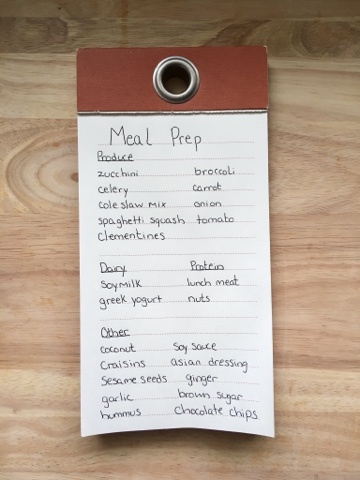 Meal Prep
Produce
zucchini broccoli
celery carrot
coleslaw mix onion
spaghetti squash tomato
clementines
Dairy Protein
soymilk lunch meat
greek yogurt nuts
Other
coconut soy sauce
craisins asian dressing
sesame seeds ginger
garlic brown sugar
hummus chocolate chips